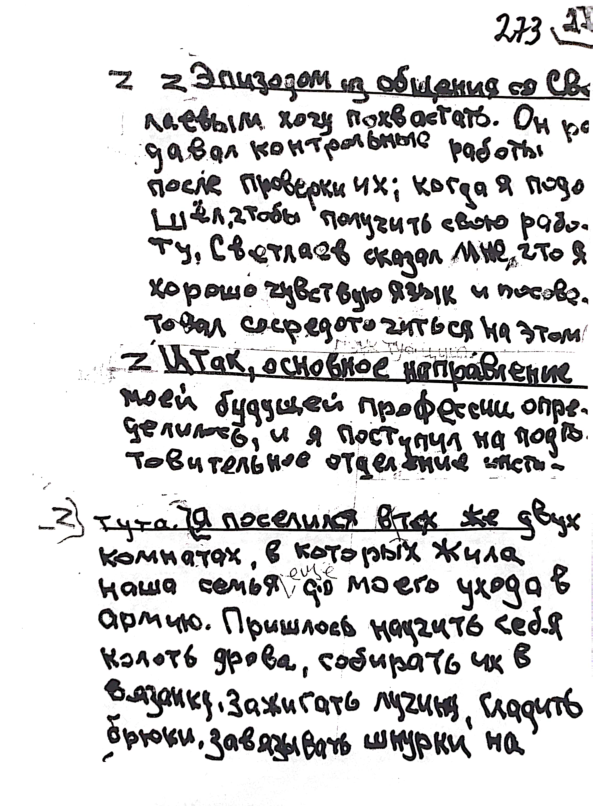 273 17
Z Z Эпизодом из общения со Све
лаевым хочу похвастать. Он ра
давал контрольные работы
после проверки их; когда я подо
шёл, чтобы получить свою рабо-
ту, Светлаев сказал мне, что я
хорошо чувствую язык и посове-
товал сосредоточиться на этом
Z Итак, основное направление
моей будущей профессии опре-
делилось, и я поступил на подго-
товительное отделение инсти-
Z) тута. Я поселился в тех же двух
комнатах, в которых жила
наша семья еще до моего ухода в
армию. Пришлось научить себя
колоть дрова, собирать их в
вязанку, зажигать лучину, гладить
брюки, завязывать шнурки на